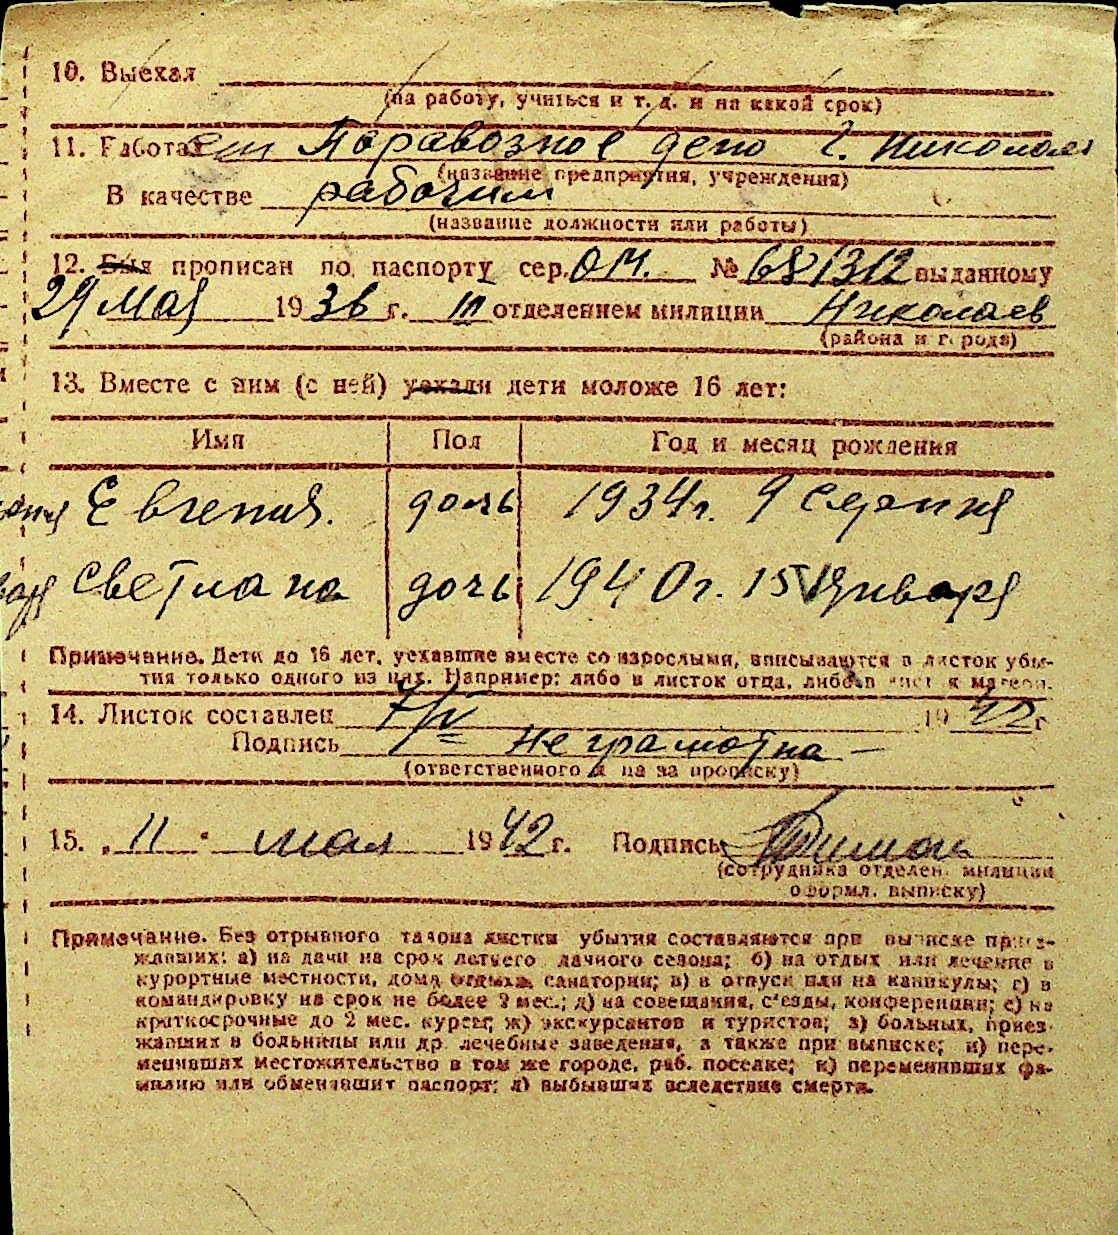 10. Выехал
(на работу, учиться и т. д. и на какой срок)
11. Работает Паравозное депо г. Николаев
(название предприятия, учреждения)
В качестве рабочим
(название должности или работы)
12. Был прописан по паспорту сер. ОМ. № 681312 выданному
29 мая 1936 г. III отделением милиции Николаев
(района и города)
13. Вместе с ним (с ней) уехали дети моложе 16 лет:
Имя Пол Год и месяц рождения
Евгения. дочь 1934 г. 9 серпня
Светлана дочь 1940 г. 15 января
Примечание. Дети до 16 лет, уехавшие вместе со взрослыми, вписываются в листок убы-
тия только одного из них. Например: либо в листок отца, либо в листок матери.
14. Листок составлен 7/V 1942 г
Подпись неграмотна —
(ответственного за прописку)
15. „11" мая 1942 г. Подпись
(сотрудника отделен. милиции
оформл. выписку)
Примечание. Без отрывного талона листки убытия составляются при выписке приез-
жавших: а) на дачи на срок летнего дачного сезона; б) на отдых или лечение в
курортные местности, дома отдыха, санатории; в) в отпуск или на каникулы; г) в
командировку на срок не более 2 мес.; д) на совещания, с'езды, конференции; е) на
краткосрочные до 2 мес. курсы; ж) экскурсантов и туристов; з) больных, приез-
жавших в больницы или др. лечебные заведения, а также при выписке; и) пере-
менивших местожительство в том же городе, раб. поселке; к) переменивших фа-
милию или обменявших паспорт; л) выбывших вследствие смерти.